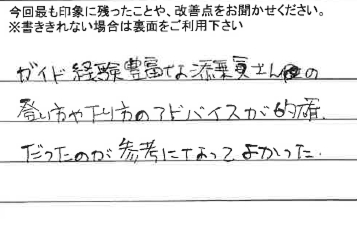 今回最も印象に残ったことや、改善点をお聞かせください。
※書ききれない場合は裏面をご利用下さい
ガイド経験豊富な添乗員さんの
登り方や下り方のアドバイスが的確
だったのが参考になってよかった.